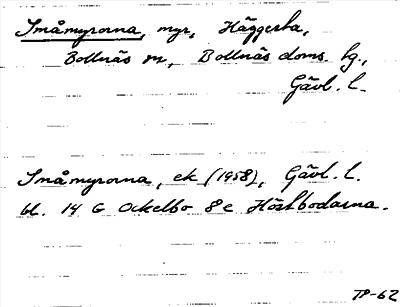 Småmyrorna, myr, Häggesta,
Bollnäs sn, Bollnäs doms. lg.,
Gävl. l.
Småmyrorna, ek (1958), Gävl. l.
bl. 14 G Ockelbo 8e Höstbodarna.
TP-62